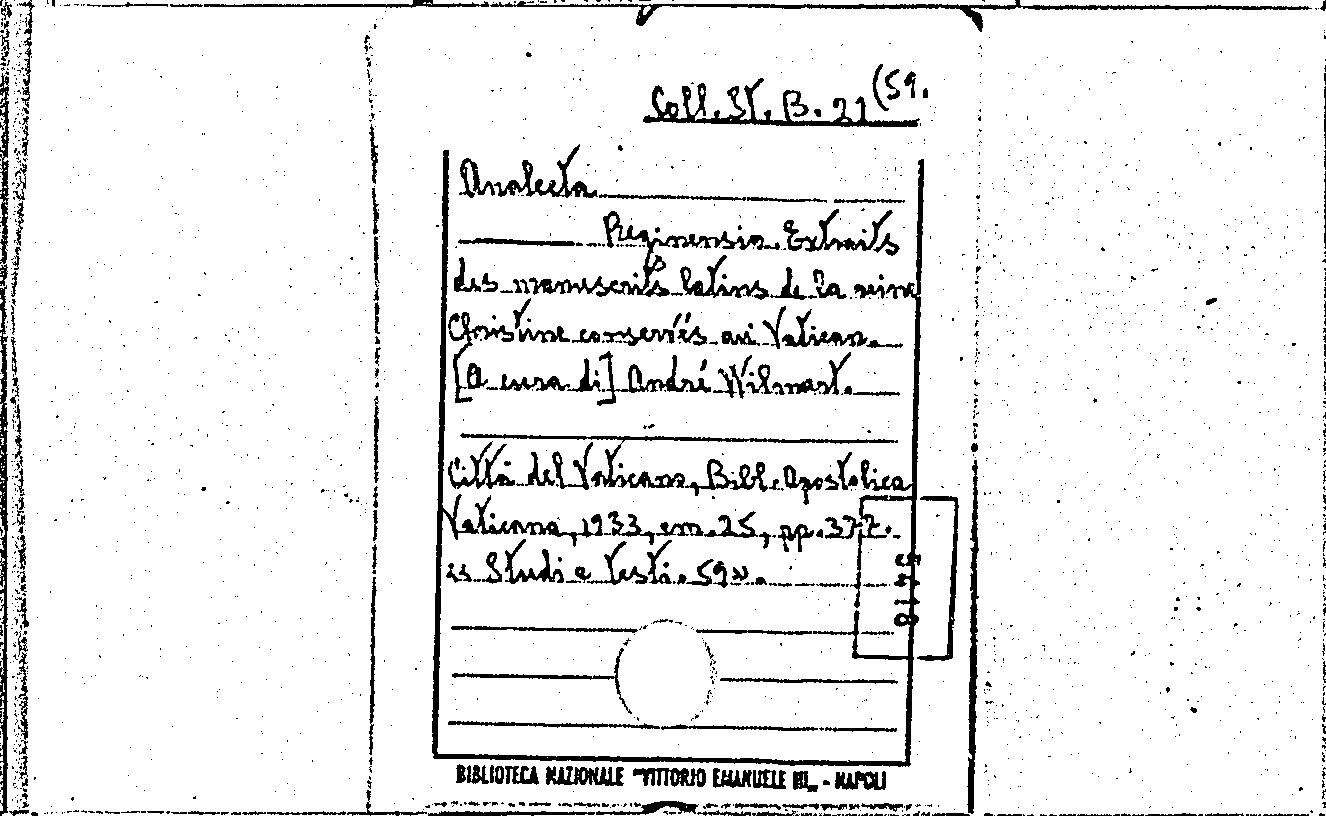 Coll. St. B. 21 (59.
Analecta
Reginensia. Extraits
des manuscrits latins de la reine
Christine conservés au Vatican.
[A cura di] André Wilmart.
Città del Vaticano, Bibl. Apostolica
Vaticana, 1933, cm. 25, pp. 377.
«Studi e testi. 59».
5418
BIBLIOTECA NAZIONALE "VITTORIO EMANUELE III„ - NAPOLI